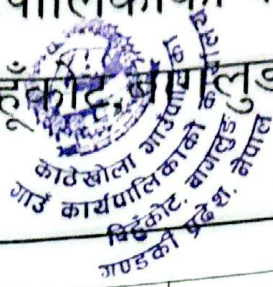 पालिकाको
हूँकोट, बागलुङ
काठेखोला गाउँपालिका
गाउँ कार्यपालिकाको कार्यालय
बिहुँकोट, बागलुङ
गण्डकी प्रदेश, नेपाल